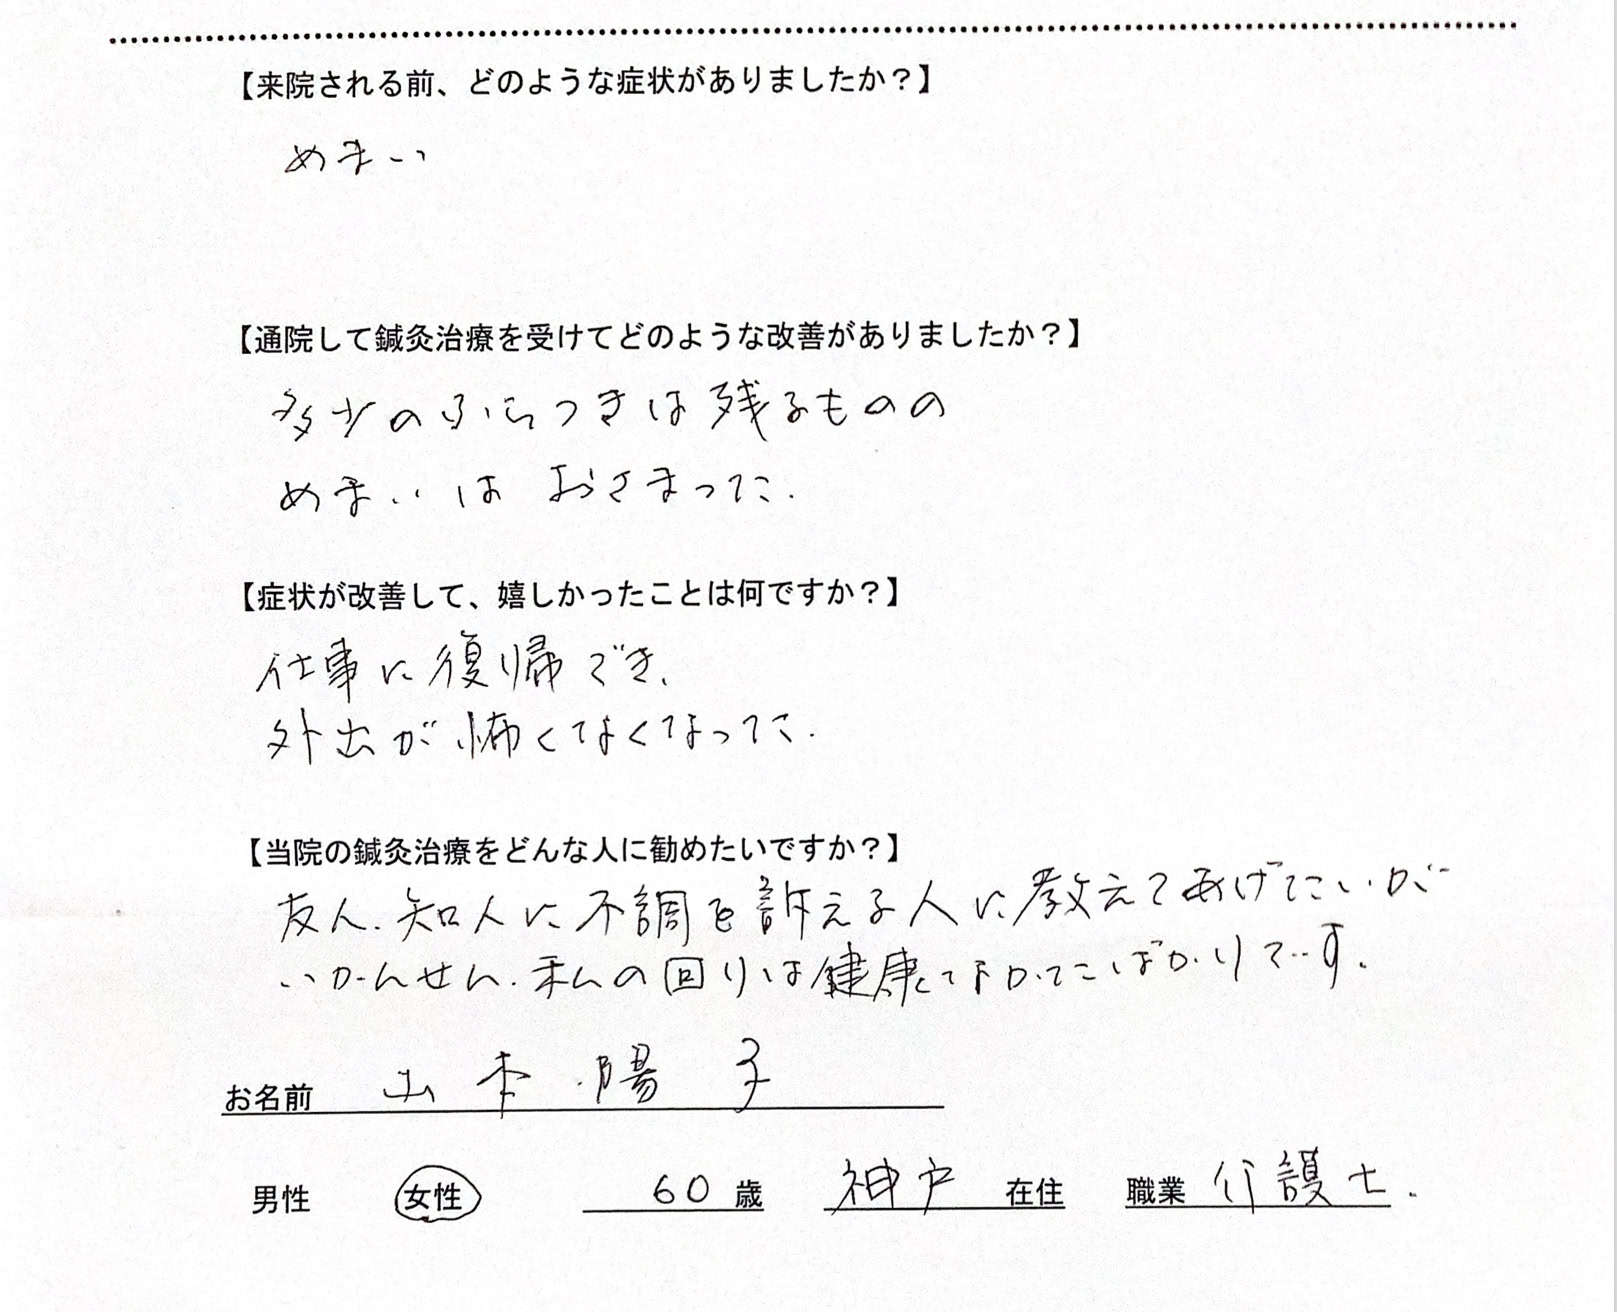 【来院される前、どのような症状がありましたか？】
めまい
【通院して鍼灸治療を受けてどのような改善がありましたか？】
多少のふらつきは残るものの
めまいは おさまった.
【症状が改善して、嬉しかったことは何ですか？】
仕事に復帰でき、
外出が怖くなくなった.
【当院の鍼灸治療をどんな人に勧めたいですか？】
友人、知人に不調を訴える人に教えてあげたいが
いかんせん、私の回りは健康なかたばかりです.
お名前 山本 陽子
男性 女性 60 歳 神戸 在住 職業 介護士.